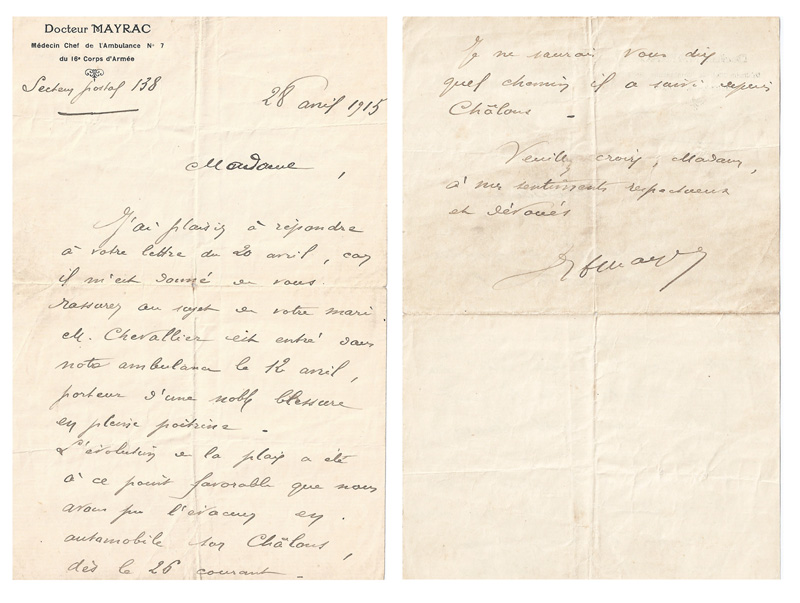 Docteur MAYRAC
Médecin Chef de l'Ambulance N° 7
du 16e Corps d'Armée
Secteur postal 138
28 avril 1915
Madame,
J'ai plaisir à répondre
à votre lettre du 20 avril, car
il m'est donné de vous
rassurer au sujet de votre mari.
M. Chevallier est entré dans
notre ambulance le 12 avril,
porteur d'une noble blessure
en pleine poitrine -
L'évolution de la plaie a été
à ce point favorable que nous
avons pu l'évacuer en
automobile sur Châlons,
dès le 26 courant -
Je ne saurais vous dire
quel chemin il a suivi depuis
Châlons -
Veuillez croire, Madame,
à mes sentiments respectueux
et dévoués